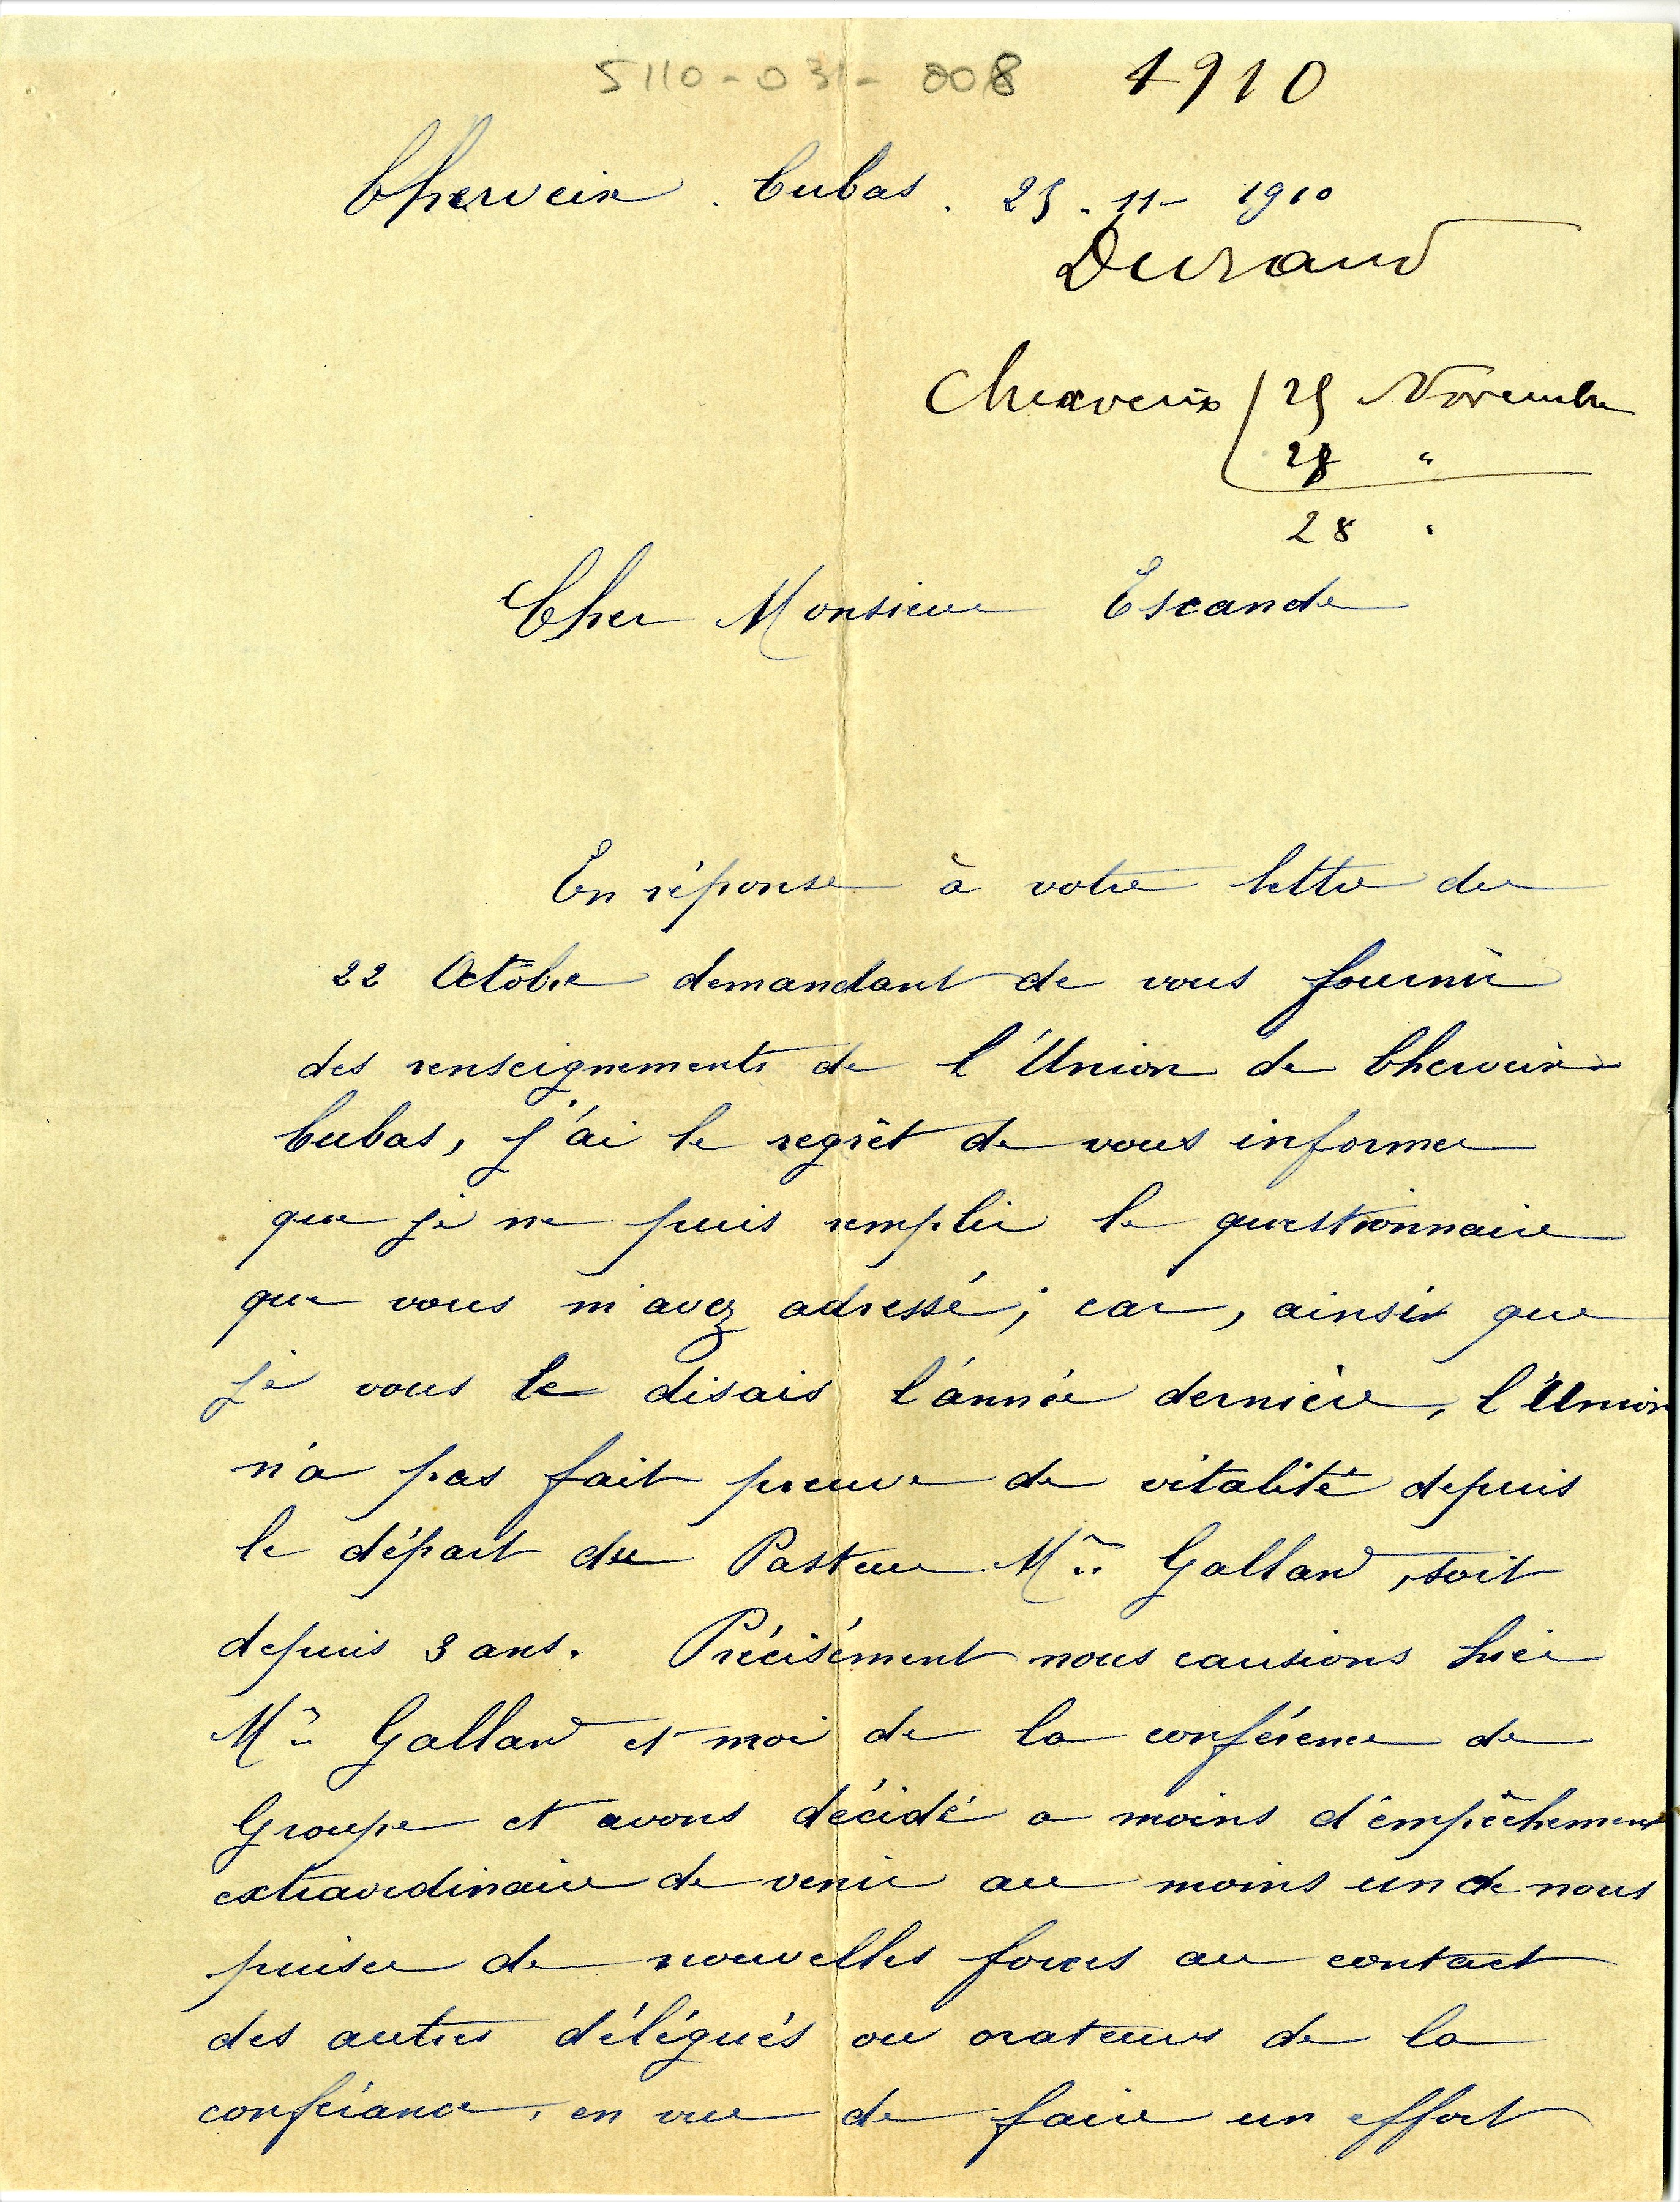 5110-031-008 1910
Cherveix. Cubas. 25-11-1910
Durand
Cherveix 25 Novembre
28 "
28 "
Cher Monsieur Escande
En réponse à votre lettre du
22 Octobre demandant de vous fournir
des renseignements de l'Union de Cherveix
Cubas, j'ai le regrêt de vous informer
que je ne puis remplir le questionnaire
que vous m'avez adressé; car, ainsi que
je vous le disais l'année dernière, l'Union
n'a pas fait preuve de vitalité depuis
le départ du Pasteur Mr. Galland, soit
depuis 3 ans. Précisément nous causions hier
Mr. Galland et moi de la conférence de
Groupe et avons décidé a moins d'empêchement
extraordinaire de venir au moins un de nous
puiser de nouvelles forces au contact
des autres délégués ou orateurs de la
conférance, en vue de faire un effort